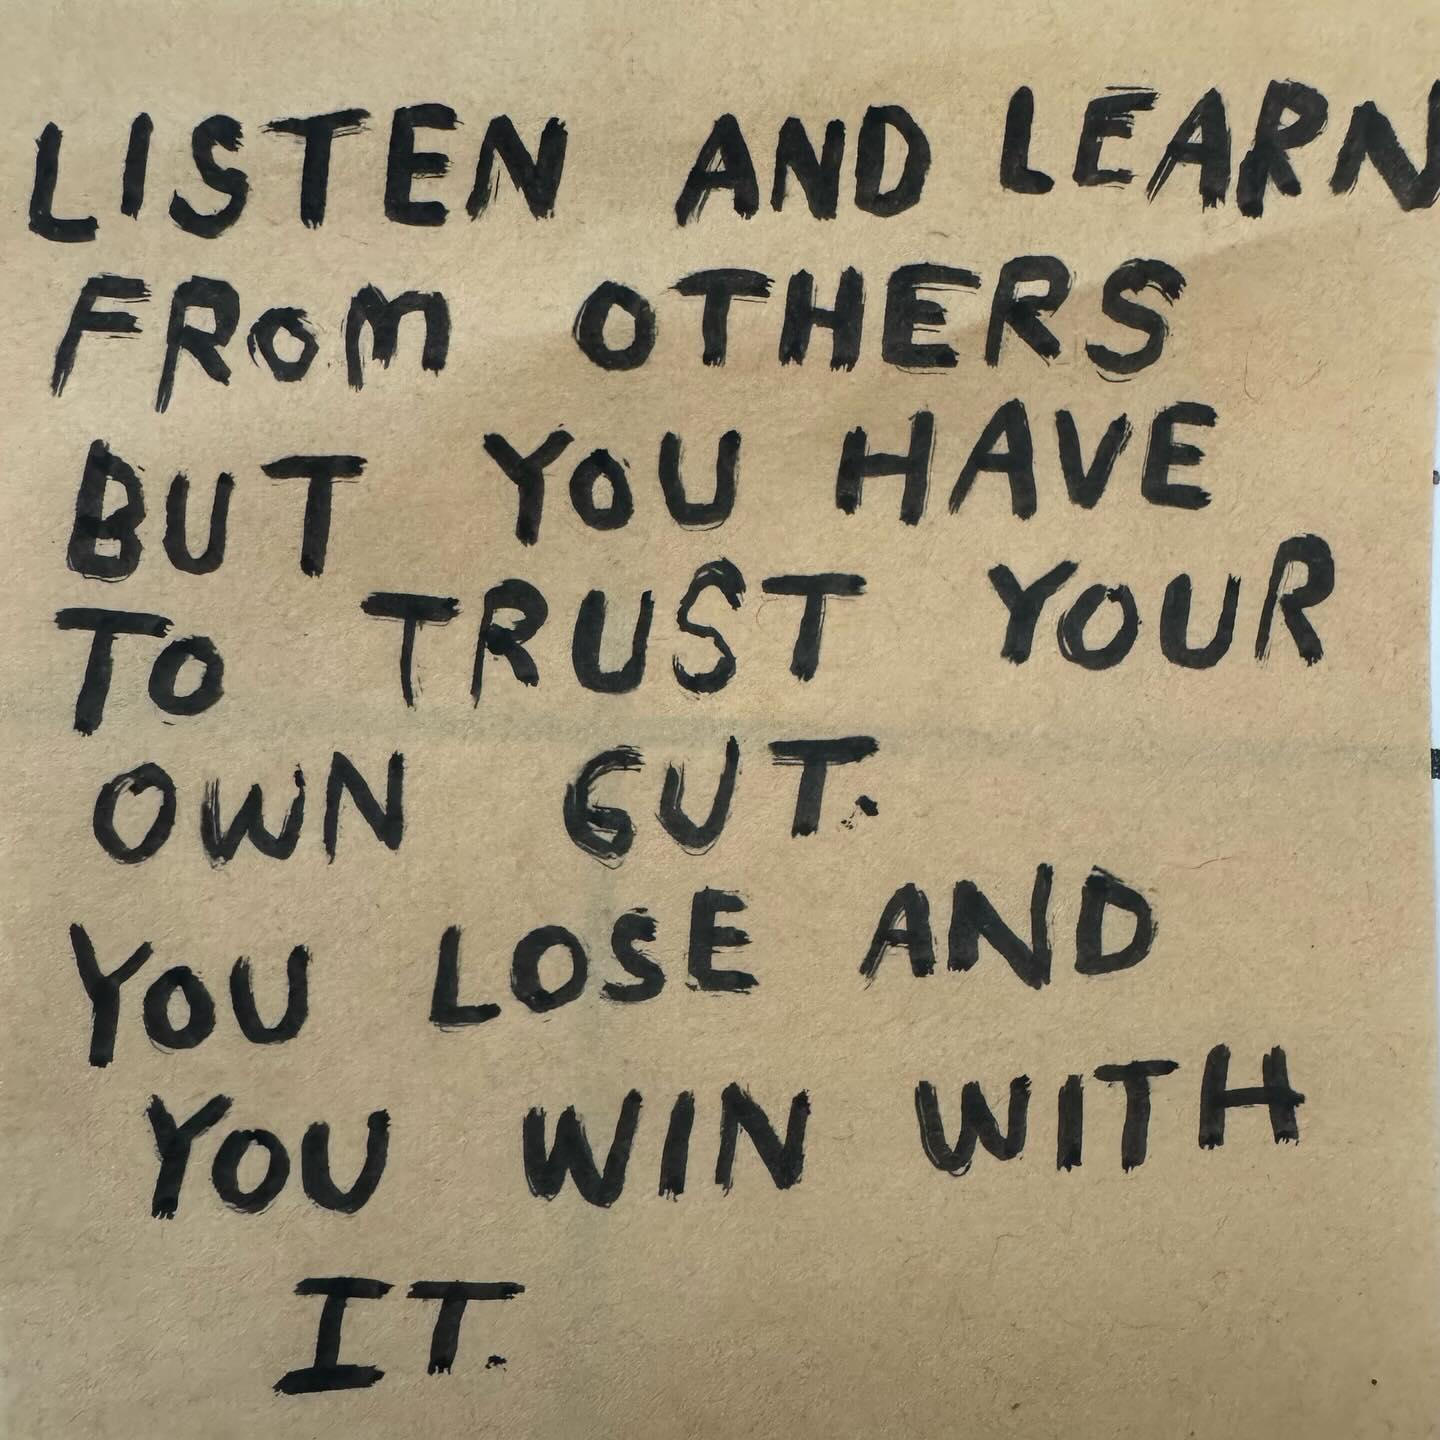 LISTEN AND LEARN
FROM OTHERS
BUT YOU HAVE
TO TRUST YOUR
OWN GUT.
YOU LOSE AND
YOU WIN WITH
IT.